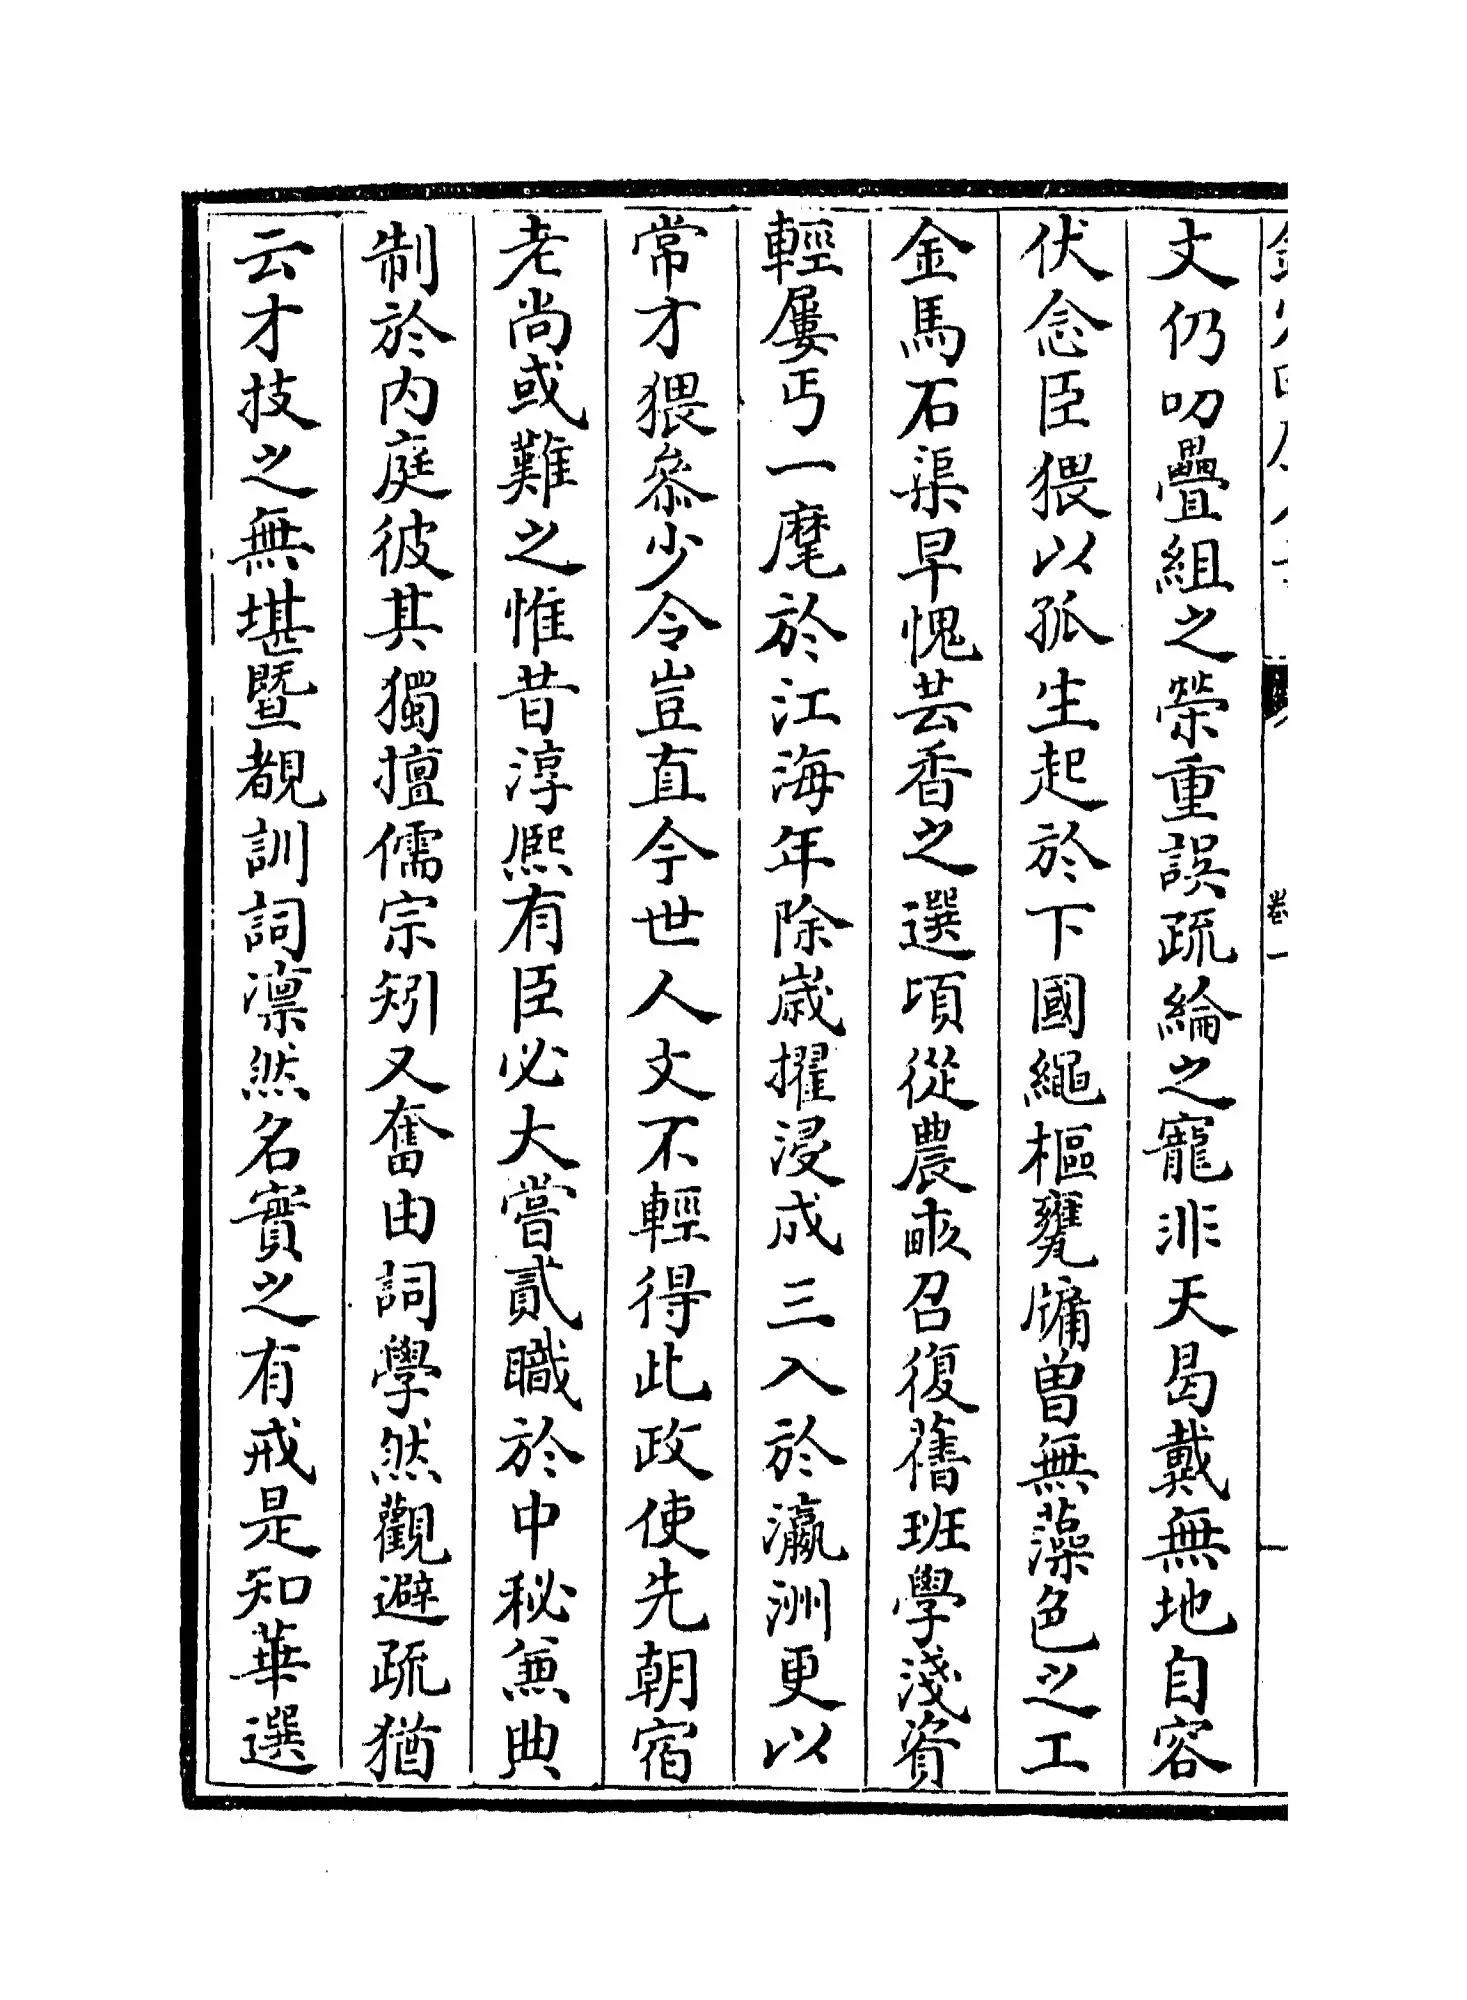 文仍叨疊組之榮重誤疏綸之寵非天曷戴無地自容
伏念臣猥以孤生起於下國繩樞甕牖曽無藻色之工
金馬石渠早愧芸香之選頃從農畝召復舊班學淺資
輕屢丐一麾於江海年除歲擢浸成三入於瀛洲更以
常才猥叅少令豈直今世人文不輕得此政使先朝宿
老尚或難之惟昔淳熈有臣必大嘗貳職於中秘兼典
制於内庭彼其獨擅儒宗矧又奮由詞學然觀避疏猶
云才技之無堪暨覩訓詞凛然名實之有戒是知華選
卷一